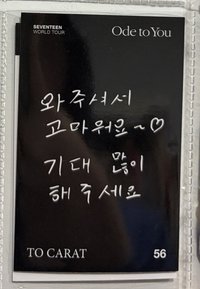 SEVENTEEN
WORLD TOUR
Ode to You
와주셔서
고마워요~♡
기대 많이
해주세요
TO CARAT
56